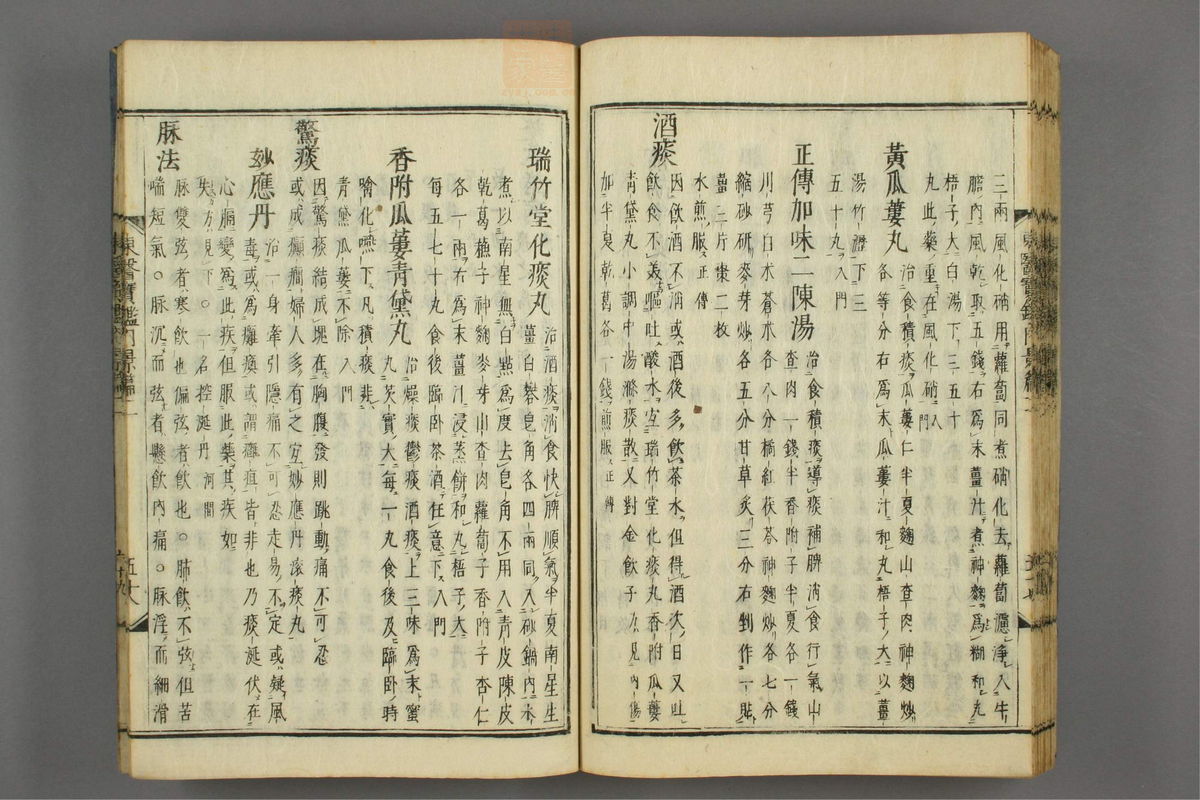 三兩風化硝用蘿蔔同煮硝化去蘿蔔濾淨入牛
膽內風乾取五錢右爲末薑汁煮神麴爲糊和丸
梧子大白湯下三五十
丸此藥重在風化硝入門
黃瓜蔞丸 治食積痰瓜蔞仁半夏麴山査肉神麴炒
各等分右爲末瓜蔞汁和丸梧子大以薑
湯竹瀝下三
五十丸入門
正傳加味二陳湯 治食積痰導痰補脾消食行氣山
査肉一錢半香附子半夏各一錢
川芎白朮蒼朮各八分橘紅茯苓神麴炒各七分
縮砂研麥芽炒各五分甘草炙三分右剉作一貼
薑三片棗二枚
水煎服正傳
酒痰
因飮酒不消或酒後多飮茶水但得酒次日又吐
飮食不美嘔吐酸水宜瑞竹堂化痰丸香附瓜蔞
靑黛丸小調中湯滌痰散又對金飮子方見內傷
加半夏乾葛各一錢煎服正傳
瑞竹堂化痰丸 治酒痰消食快脾順氣半夏南星生
薑白礬皂角各四兩同入砂鍋內水
煮以南星無白點爲度去皂角不用入靑皮陳皮
乾葛蘇子神麴麥芽山査肉蘿蔔子香附子杏仁
各一兩右爲末薑汁浸蒸餠和丸梧子大
每五七十丸食後臨臥茶酒任意下入門
香附瓜蔞靑黛丸 治燥痰鬱痰酒痰上三味爲末蜜
丸芡實大每一丸食後及臨臥時
噙化嚥下凡積痰非
靑黛瓜蔞不除入門
驚痰
因驚痰結成塊在胸腹發則跳動痛不可忍
或成癲癎婦人多有之宜妙應丹滚痰丸
妙應丹 治一身牽引隱痛不可忍走易不定或疑風
毒或爲癱瘓或謂癰疽皆非也乃痰涎伏在
心膈變爲此疾但服此藥其疾如
失方見下○一名控涎丹河間
脈法
脈雙弦者寒飮也偏弦者飮也○肺飮不弦但苦
喘短氣○脈沉而弦者懸飮內痛○脈浮而細滑
東醫寶鑑內景篇二
五十八